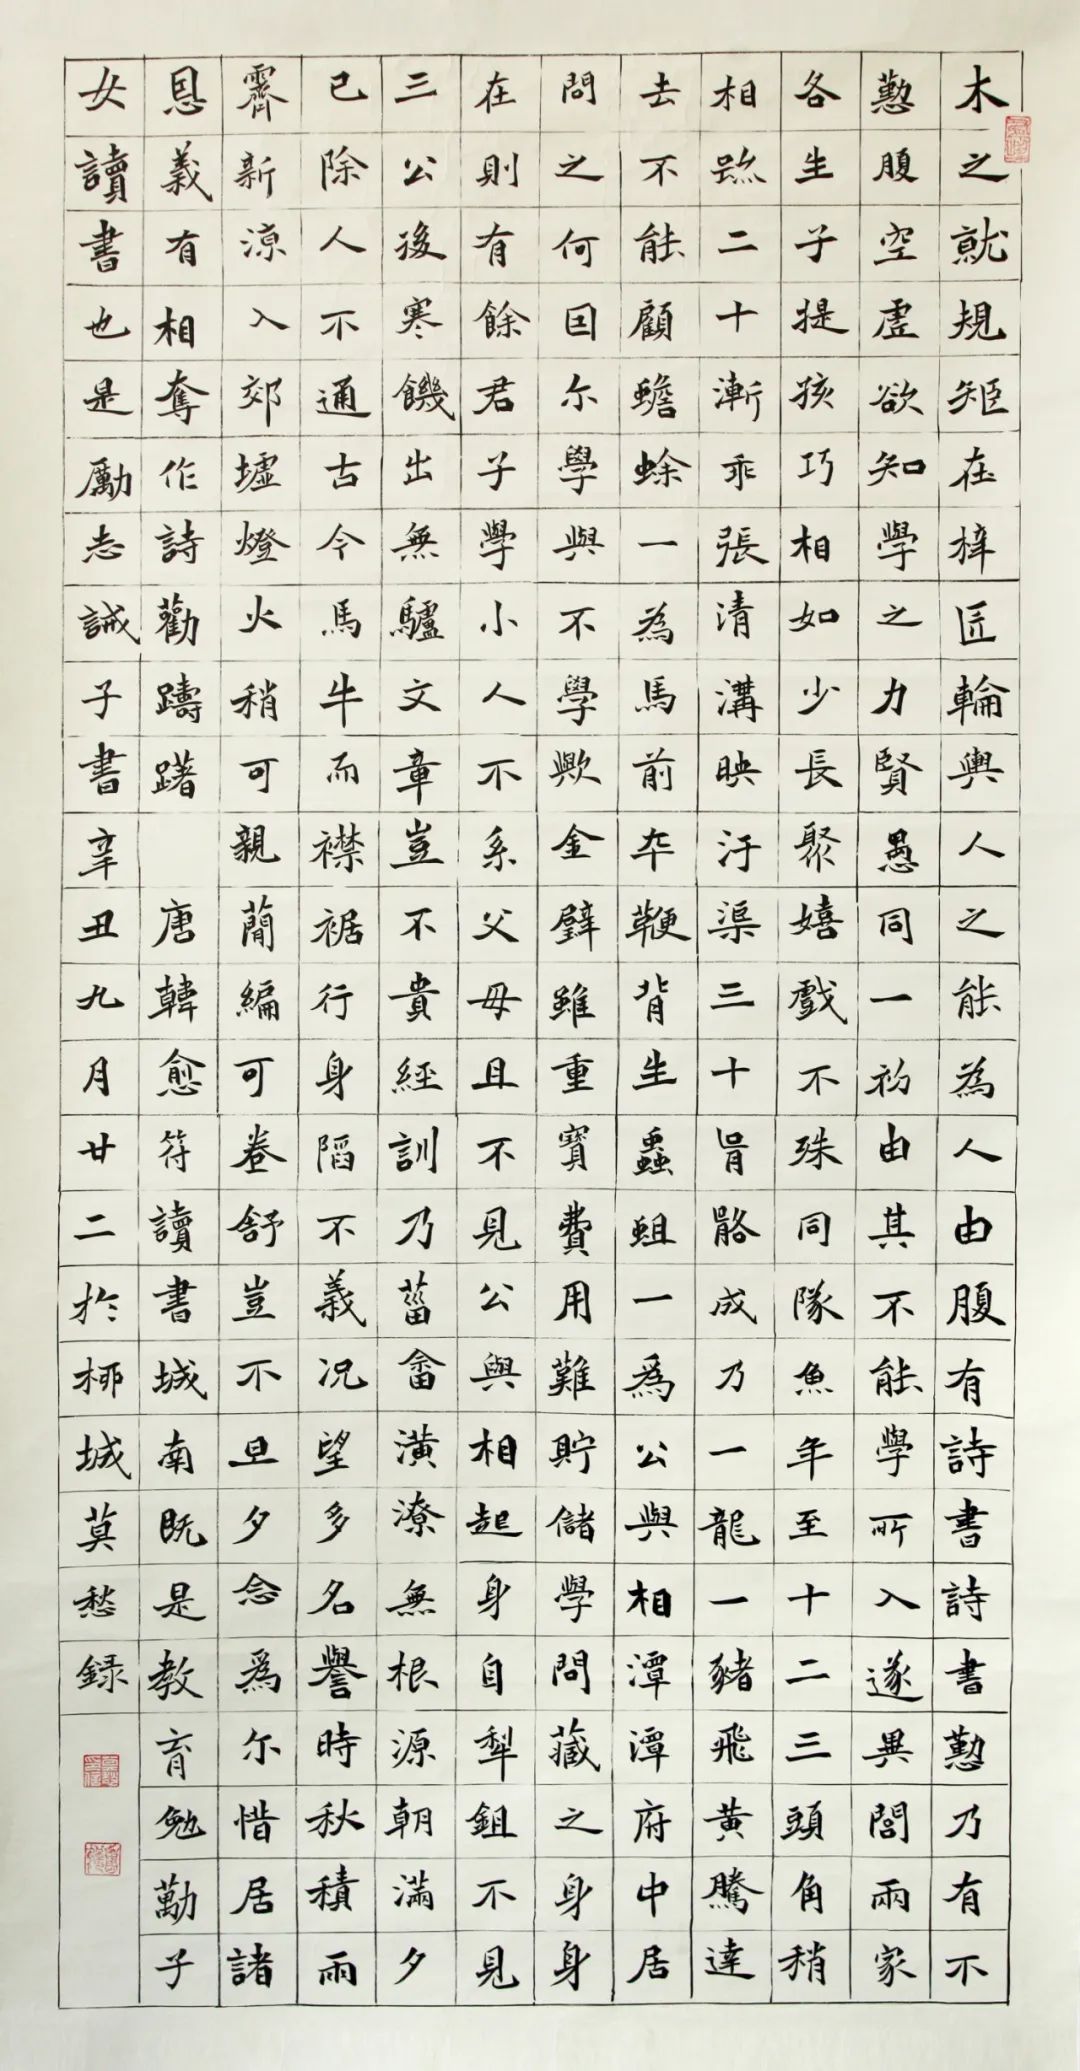 木之就規矩在梓匠輪輿人之能為人由腹有詩書詩書懃乃有不
懃腹空虛欲知學之力賢愚同一初由其不能學所入遂異閭兩家
各生子提孩巧相如少長聚嬉戲不殊同隊魚年至十二三頭角稍
相踈二十漸乖張清溝映汙渠三十骨骼成乃一龍一豬飛黃騰達
去不能顧蟾蜍一為馬前卒鞭背生蟲蛆一爲公與相潭潭府中居
問之何因尔學與不學歟金璧雖重寶費用難貯儲學問藏之身身
在則有餘君子學小人不系父母且不見公與相起身自犁鉏不見
三公後寒饑出無驢文章豈不貴經訓乃菑畬潢潦無根源朝滿夕
已除人不通古今馬牛而襟裾行身陷不義況望多名譽時秋積雨
霽新涼入郊墟燈火稍可親簡編可卷舒豈不旦夕念爲尔惜居諸
恩義有相奪作詩勸躊躇 唐韓愈符讀書城南既是教育勉勱子
女讀書也是勵志誡子書辛丑九月廿二於柳城莫愁錄